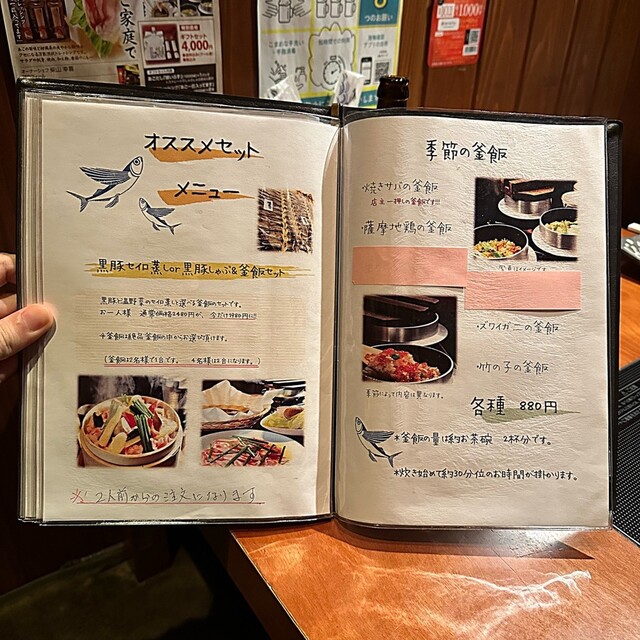 ご家庭で
ギフトセット
4,000円
つのお願い
¥1000
オススメセット
メニュー
黒豚セイロ蒸しor黒豚しゃぶ&釜飯セット
黒豚と温野菜のセイロ蒸しと選べる釜飯のセットです。
お一人様 通常価格2480円が、今だけ1980円に!!
*釜飯は絶品釜飯の中からお選び頂けます。
(釜飯は2名様で1台です。 4名様は2台になります。)
※2人前からの注文になります
季節の釜飯
・焼きサバの釜飯
店主一押しの釜飯です!!
・薩摩地鶏の釜飯
写真はイメージです
・ズワイガニの釜飯
・竹の子の釜飯
季節によって内容は異なります。
各種 880円
*釜飯の量は約お茶碗 2杯分です。
*炊き始めて約30分位のお時間が掛かります。